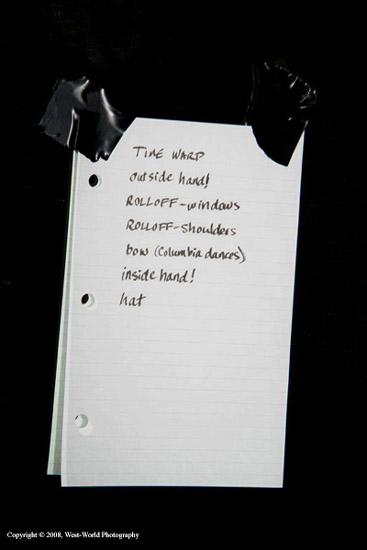 TIME WARP
outside hand!
ROLLOFF-windows
ROLLOFF-shoulders
bow (Columbia dances)
inside hand!
hat
Copyright © 2008, West-World Photography